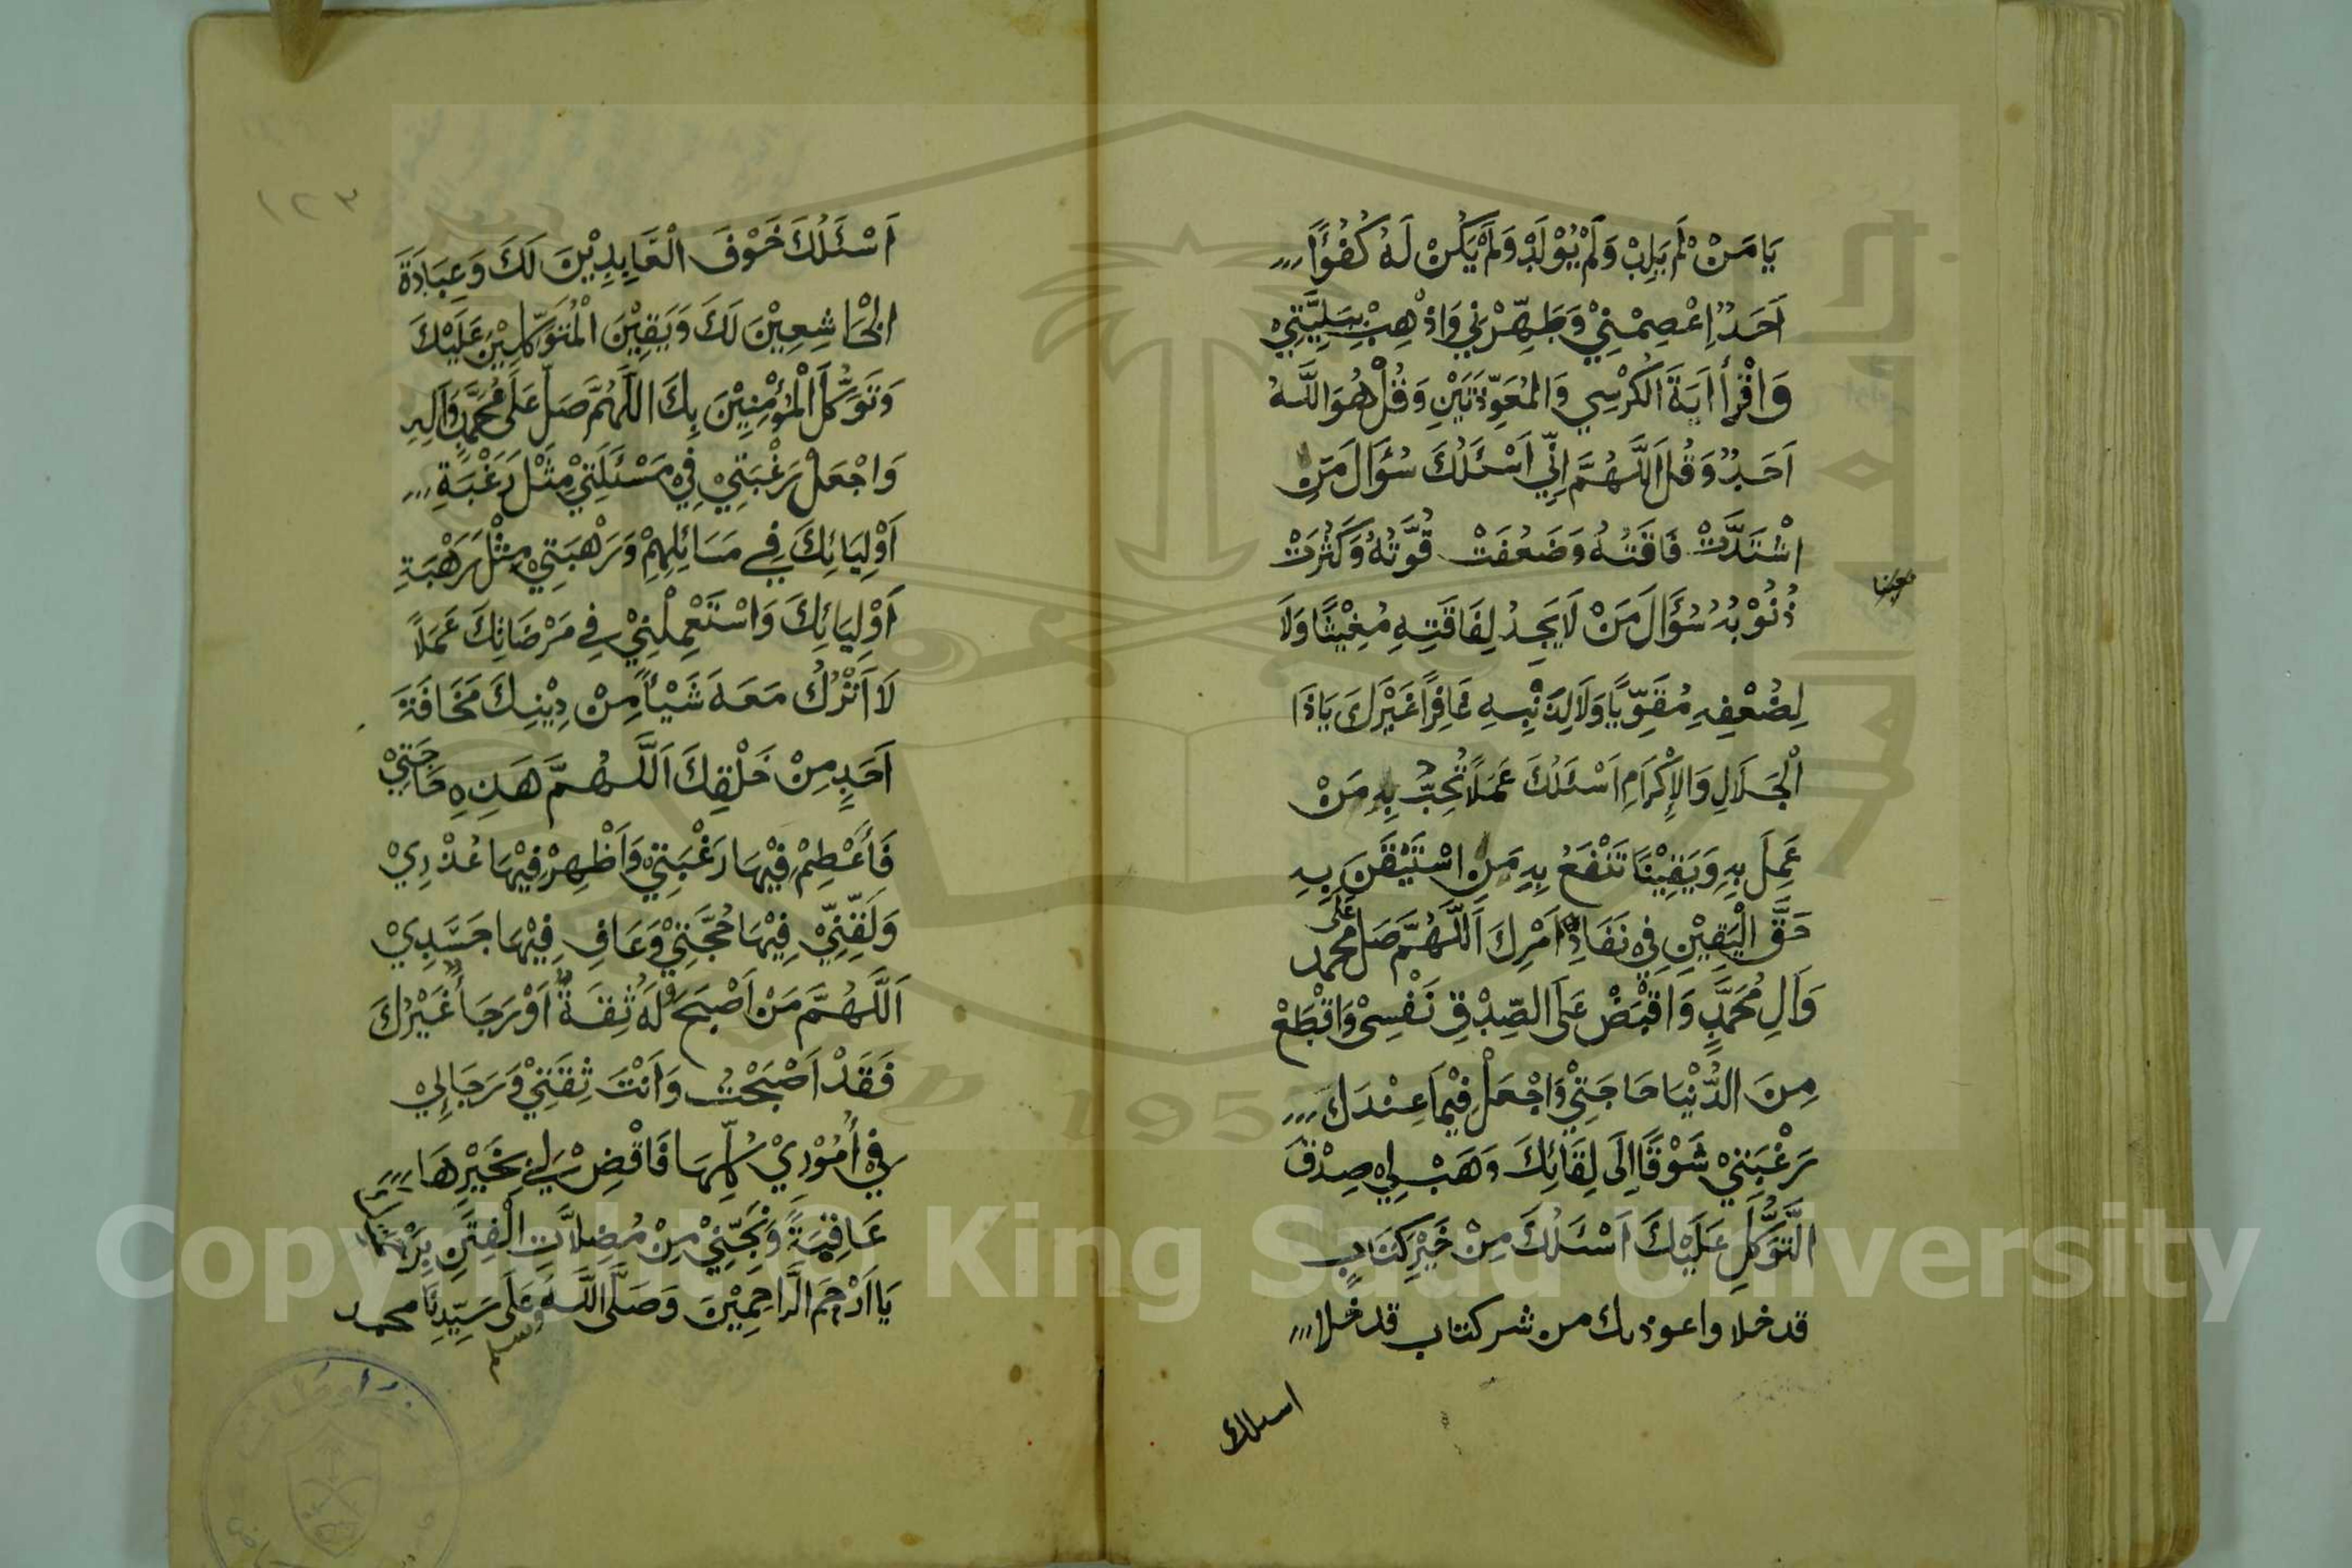 يَا مَنْ لَمْ يَلِدْ وَلَمْ يُوْلَدْ وَلَمْ يَكُنْ لَهُ كُفُوًا
اَحَدٌ اِعْصِمْنِيْ وَطَهِّرْنِيْ وَاذْهِبْ بِبَلِيَّتِيْ
وَاقْرَأْ اٰيَةَ الْكُرْسِي وَالْمُعَوِّذَتَيْنِ وَقُلْ هُوَ اللَّهُ
اَحَدٌ وَقُلْ اَللَّهُمَّ اِنِّي اَسْئَلُكَ سُؤَالَ مَنِ
اشْتَدَّتْ فَاقَتُهُ وَضَعُفَتْ قُوَّتُهُ وَكَثُرَتْ
ذُنُوْبُهُ سُؤَالَ مَنْ لَا يَجِدُ لِفَاقَتِهِ مُغِيْثًا وَلَا
لِضُعْفِهِ مُقَوِّيًا وَلَا لِذَنْبِهِ غَافِرًا غَيْرَكَ يَاذَا
الْجَلَالِ وَالْاِكْرَامِ اَسْئَلُكَ عَمَلًا تُحِبُّ بِهِ مَنْ
عَمِلَ بِهِ وَيَقِيْنًا تَنْفَعُ بِهِ مَنْ اسْتَيْقَنَ بِهِ
حَقَّ الْيَقِيْنِ فِيْ نَفَاذِ اَمْرِكَ اَللَّهُمَّ صَلِّ عَلَى محمد
وَاٰلِ مُحَمَّدٍ وَاقْبِضْ عَلَى الصِّدْقِ نَفْسِيْ وَاقْطَعْ
مِنَ الدُّنْيَا حَاجَتِيْ وَاجْعَلْ فِيْمَا عِنْدَكَ
رَغْبَتِيْ شَوْقًا اِلَى لِقَائِكَ وَهَبْ لِيْ صِدْقَ
التَّوَكُّلِ عَلَيْكَ اَسْئَلُكَ مِنْ خَيْرِ كِتَابٍ
قد خلا واعوذ بك من شر كتاب قد خلا
اسلك
١٢٣
اَسْئَلُكَ خَوْفَ الْعَابِدِيْنَ لَكَ وَعِبَادَةَ
الْخَاشِعِيْنَ لَكَ وَيَقِيْنَ الْمُتَوَكِّلِيْنَ عَلَيْكَ
وَتَوَكُّلَ الْمُؤْمِنِيْنَ بِكَ اللَّهُمَّ صَلِّ عَلَى مُحَمَّدٍ وَاٰلِهِ
وَاجْعَلْ رَغْبَتِيْ فِيْ مَسْئَلَتِيْ مِثْلَ رَغْبَةِ
اَوْلِيَائِكَ فِي مَسَائِلِهِمْ وَرَهْبَتِيْ مِثْلَ رَهْبَةِ
اَوْلِيَائِكَ وَاسْتَعْمِلْنِيْ فِي مَرْضَاتِكَ عَمَلًا
لَا اَتْرُكُ مَعَهُ شَيْأً مِنْ دِيْنِكَ مَخَافَةَ
اَحَدٍ مِنْ خَلْقِكَ اَللَّهُمَّ هَذِهِ حَاجَتِيْ
فَأَعْظِمْ فِيْهَا رَغْبَتِيْ وَاَظْهِرْ فِيْهَا عُذْرِيْ
وَلَقِّنِّيْ فِيْهَا حُجَّتِيْ وَعَافِ فِيْهَا جَسَدِيْ
اَللَّهُمَّ مَنْ اَصْبَحَ وَلَهُ ثِقَةٌ اَوْ رَجَاءٌ غَيْرُكَ
فَقَدْ اَصْبَحْتُ وَاَنْتَ ثِقَتِيْ وَرَجَائِيْ
فِيْ اُمُوْرِيْ كُلِّهَا فَاقْضِ لِيْ بِخَيْرِهَا
عَافِيَةً وَنَجِّنِيْ مِنْ مُضِلَّاتِ الْفِتَنِ بِرَحْمَتِكَ
يَا اَرْحَمَ الرَّاحِمِيْنَ وَصَلَّى اللَّهُ عَلَى سَيِّدِنَا محمد
وسلم
Copyright © King Saud University